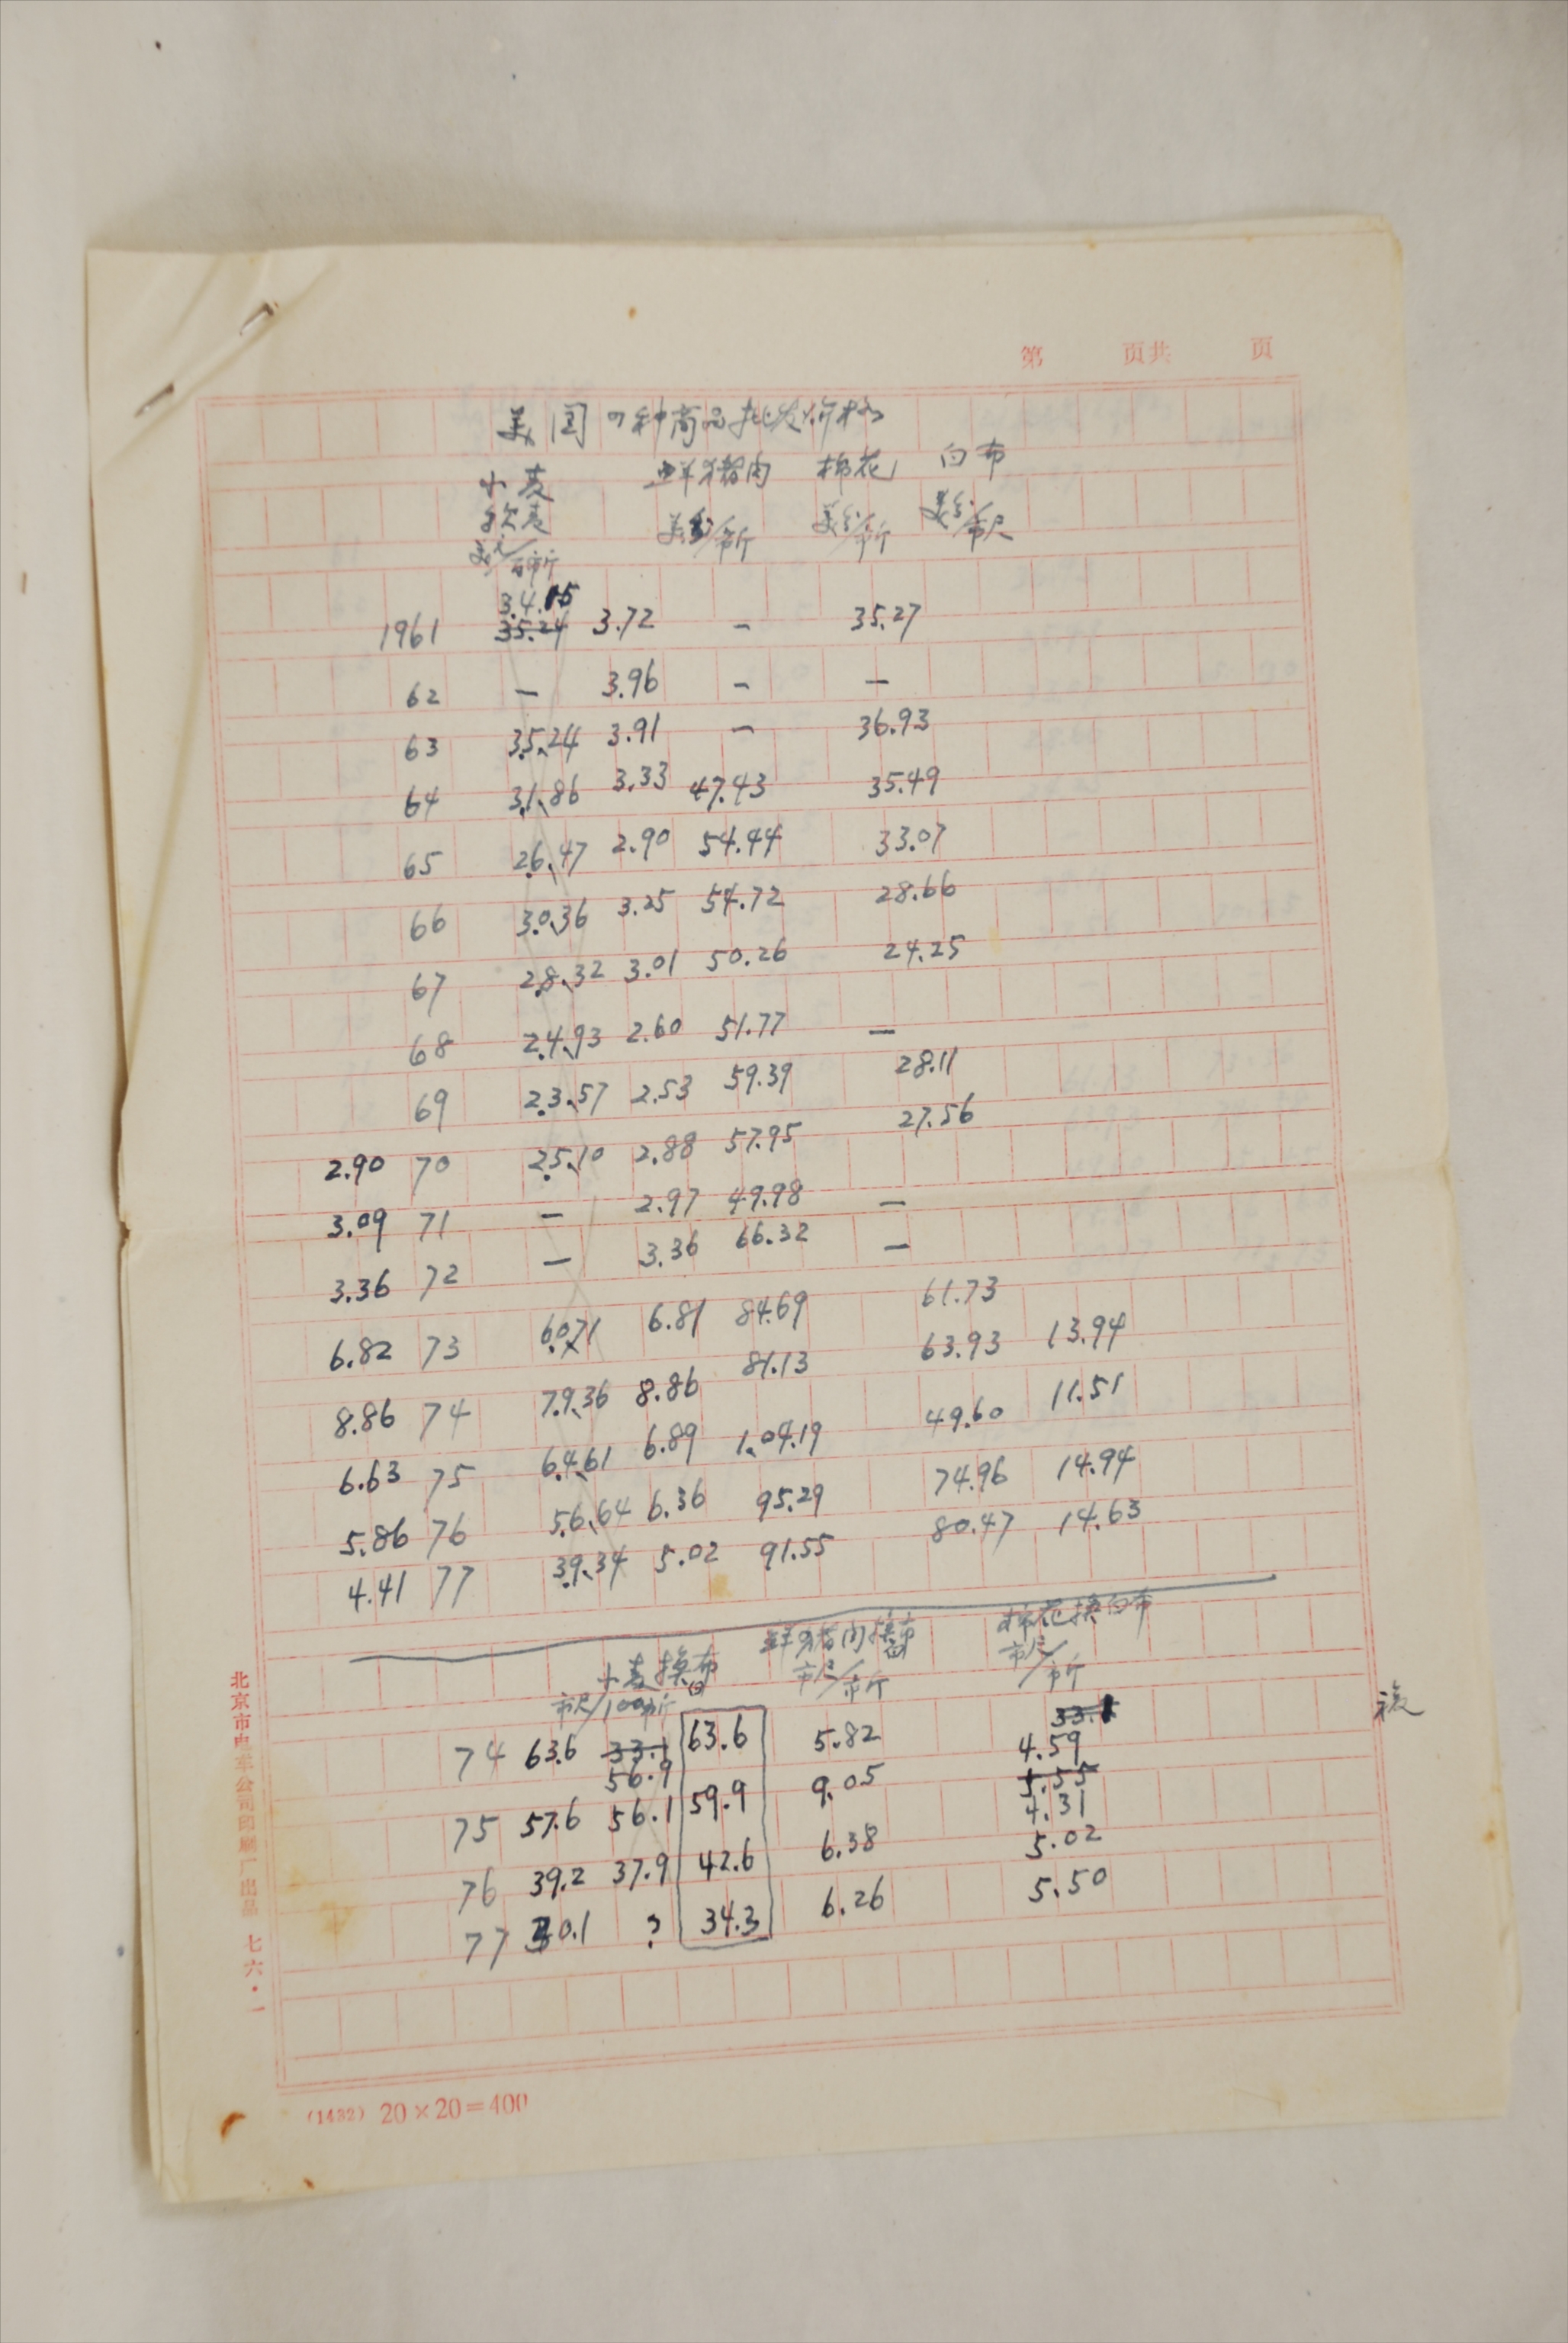 第 页共 页
美国四种商品批发价格
小麦 鲜猪肉 棉花 白布
软麦
美元/百市斤 美分/市斤 美分/市斤 美分/市尺
3.4.15
1961 35.24 3.72 — 35.27
62 — 3.96 — —
63 3.5.24 3.91 — 36.93
64 3.1.86 3.33 47.43 35.49
65 2.6.47 2.90 54.44 33.07
66 3.0.36 3.25 54.72 28.66
67 2.8.32 3.01 50.26 24.25
68 2.4.93 2.60 51.77 —
69 2.3.57 2.53 59.39 28.11
2.90 70 2.5.10 2.88 57.95 27.56
3.09 71 — 2.97 49.98 —
3.36 72 — 3.36 66.32 —
6.82 73 6.0.71 6.81 84.69 61.73
8.86 74 7.9.36 8.86 81.13 63.93 13.94
6.63 75 6.4.61 6.89 1.04.19 49.60 11.51
5.86 76 5.6.64 6.36 95.29 74.96 14.94
4.41 77 3.9.34 5.02 91.55 80.47 14.63
小麦换白布 鲜猪肉换白布 棉花换白布
市尺/100市斤 市尺/市斤 市尺/市斤
33.1
74 63.6 33.1 63.6 5.82 4.59
56.9 5.55
75 57.6 56.1 59.9 9.05 4.31
76 39.2 37.9 42.6 6.38 5.02
77 30.1 ? 34.3 6.26 5.50
北京市电车公司印刷厂出品 七六·一
(1432) 20×20=400